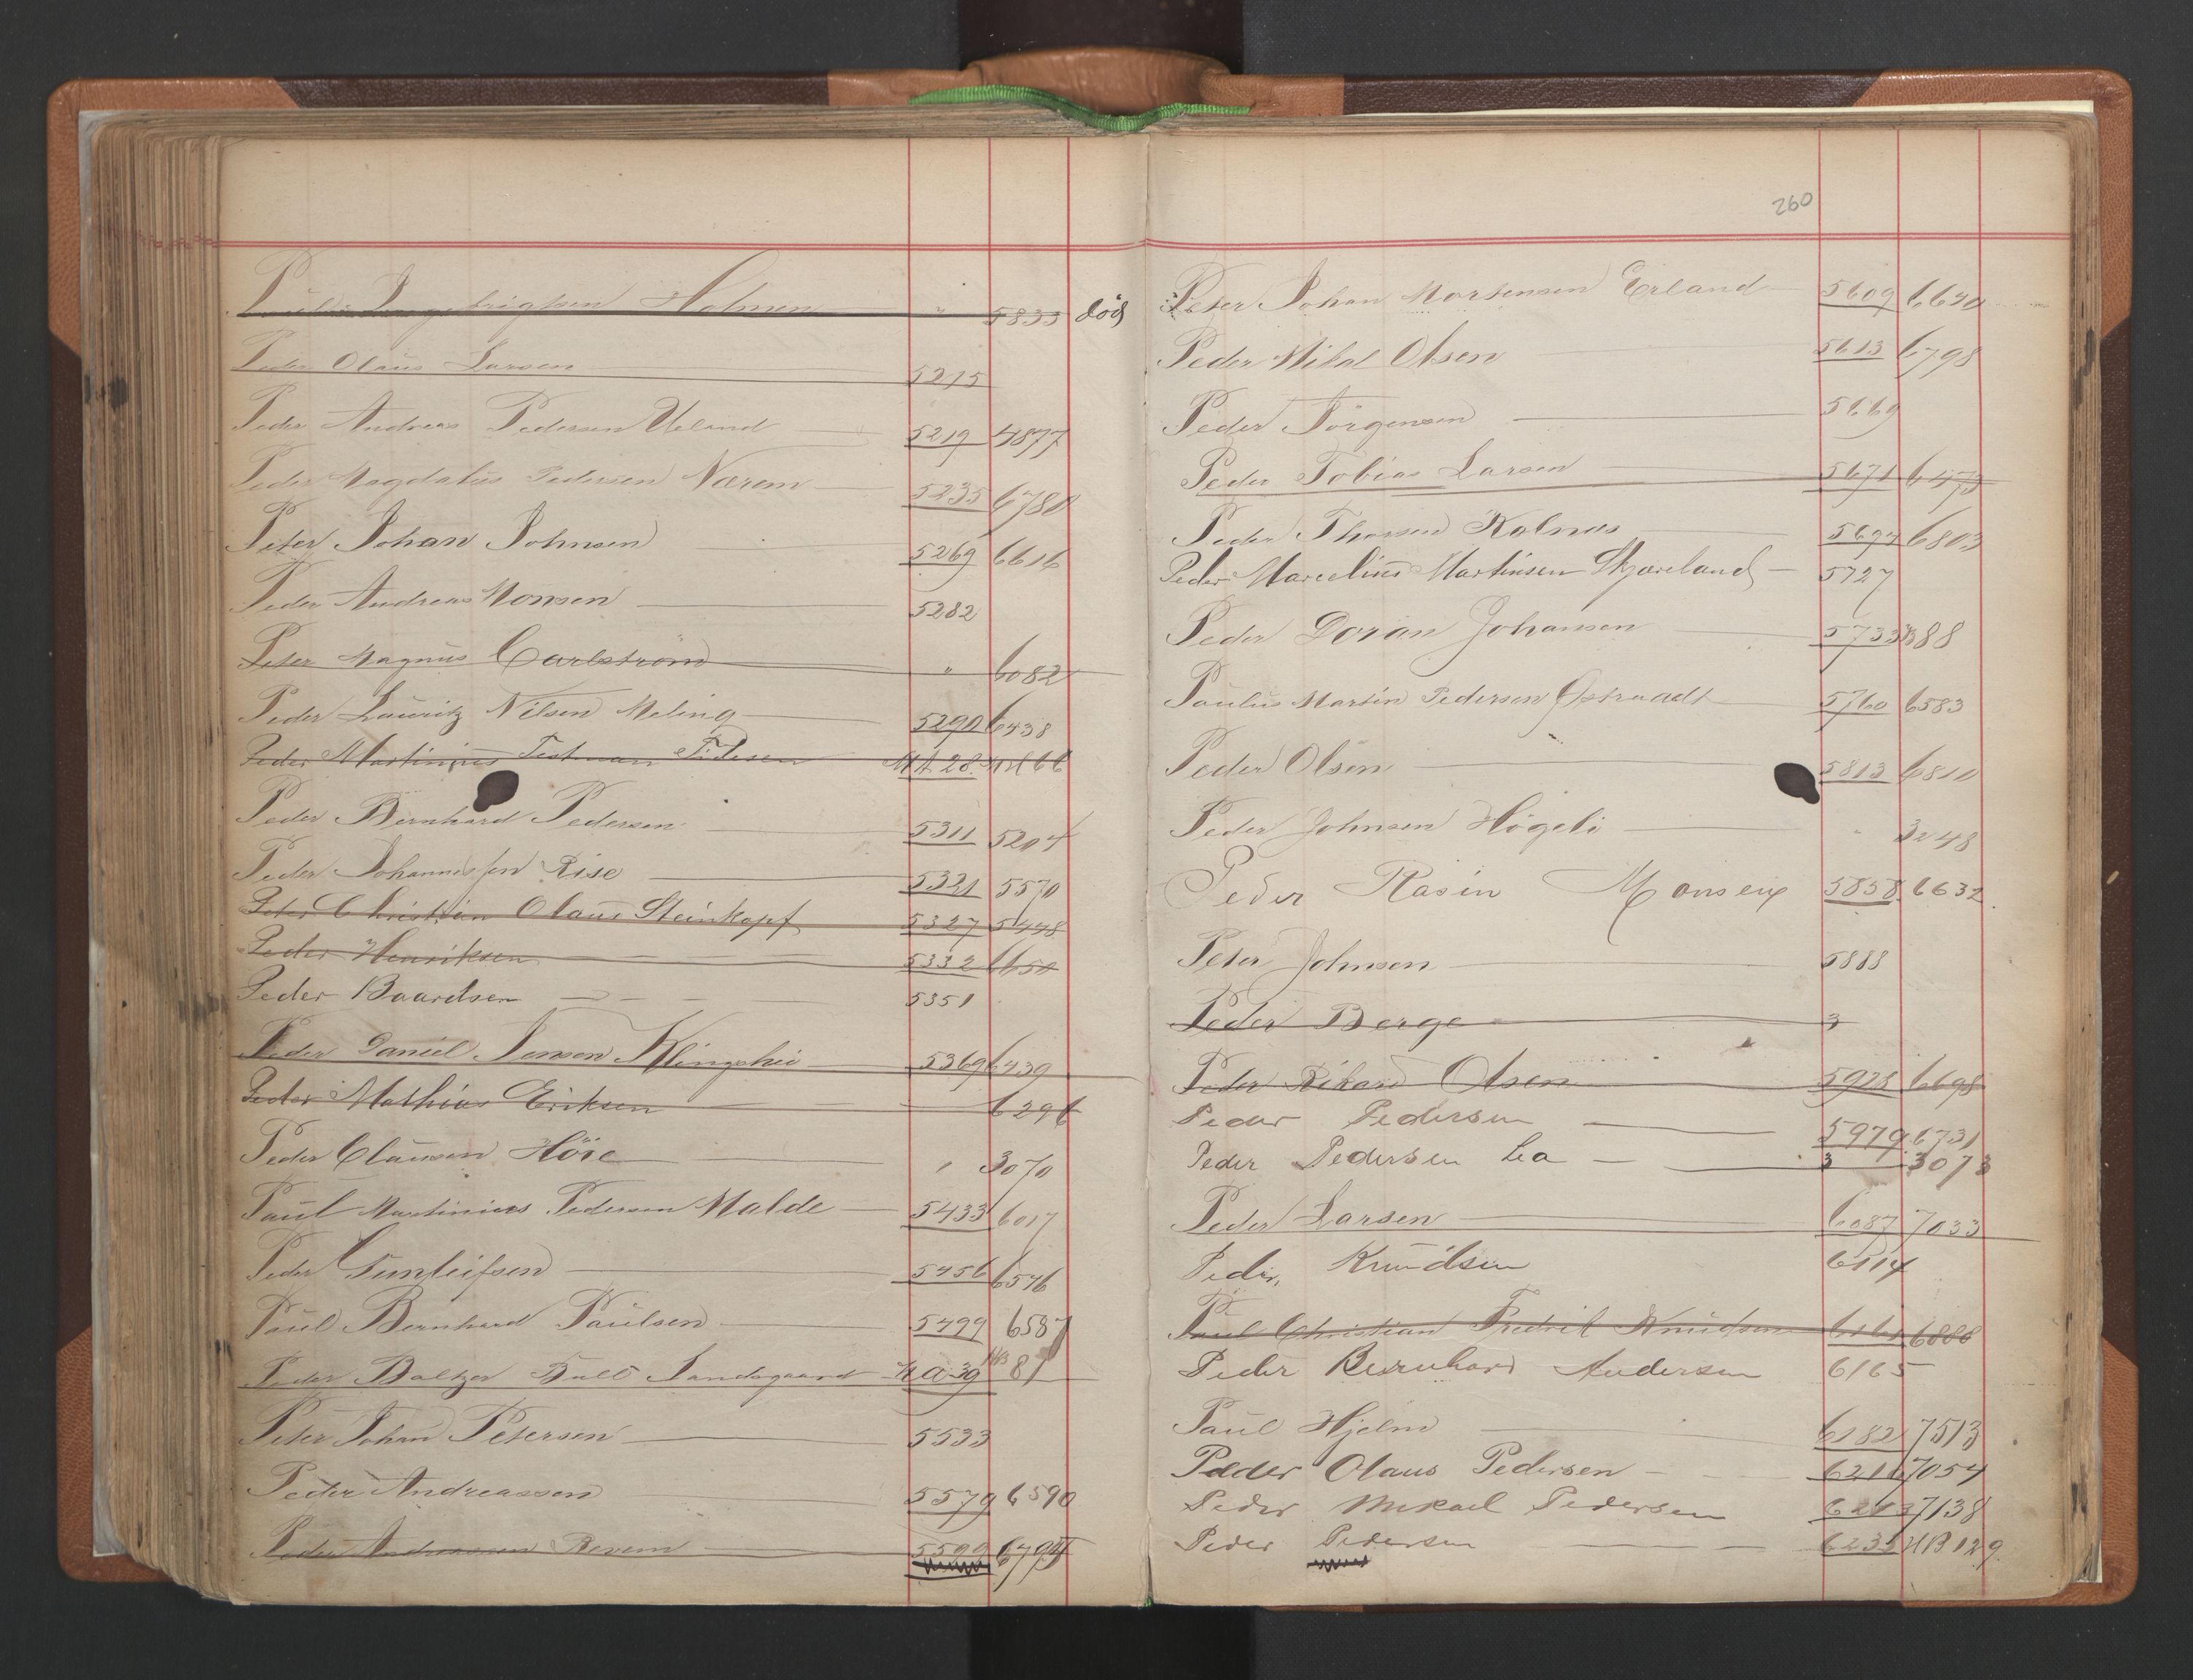 Holmen " 5833 död
Peder Olaus Larsen 5215
Peder Andreas Pedersen Ueland 5219 4877
Peder Magdalus Pedersen Nærem 5235 6780
Peter Johan Johnsen 5269 6616
Peder Andreas Monsen 5282
Peter Magnus Carlström " 6082
Peder Lauritz Nilsen Meling 5290 6438
Peder Martinius Pedersen
Peder Bernhard Pedersen 5311 5204
Peder Johannessen Rise 5321 5570
Peter Christian Olaus Steinkopf 5327 5448
Peder Henriksen 5332 6650
Peder Baardsen 5351
Peder Daniel Jensen 5369 6439
Peder Mathias Eriksen 6296
Peder Clausen Höie " 3070
Paul Martinius Pedersen Malde 5433 6017
Peder Gunleifsen 5456 6546
Paul Bernhard Paulsen 5499 6587
Peder Baltzer Sandsgaard 81
Peter Johan Petersen 5533
Peder Andreassen 5579 6590
Peder Andreassen Revem 5599
260
Peter Johan Mortensen Erland 5609 6640
Peder Mikal Olsen 5613 6798
Peder Jörgensen 5669
Peder Tobias Larsen 5671 6473
Peder Thorsen Kolnes 5694 6803
Peder Marcelius Martinsen Skjæreland 5727
Peder Dorian Johansen 5733 88
Paulus Martin Pedersen Østraadt 5760 6583
Peder Olsen 5813 6810
Peder Johnsen Högeli " 3248
Peder Rasin Monsen 5858 6632
Peter Johnsen 5888
Peder Berge 3
Peder Rikard Olsen 5928 6698
Peder Pedersen 5979 6731
Peder Pedersen Lea 3 3073
Peder Larsen 6087 7033
Peder Knudsen 6114
Paul Christian Fredrik Knudsen 6161 6888
Peder Bernhard Andersen 6165
Paul Hjelm 6182 7513
Peder Olaus Pedersen 7054
Peder Mikael Pedersen 7138
Peder Pedersen 6235 HB 129